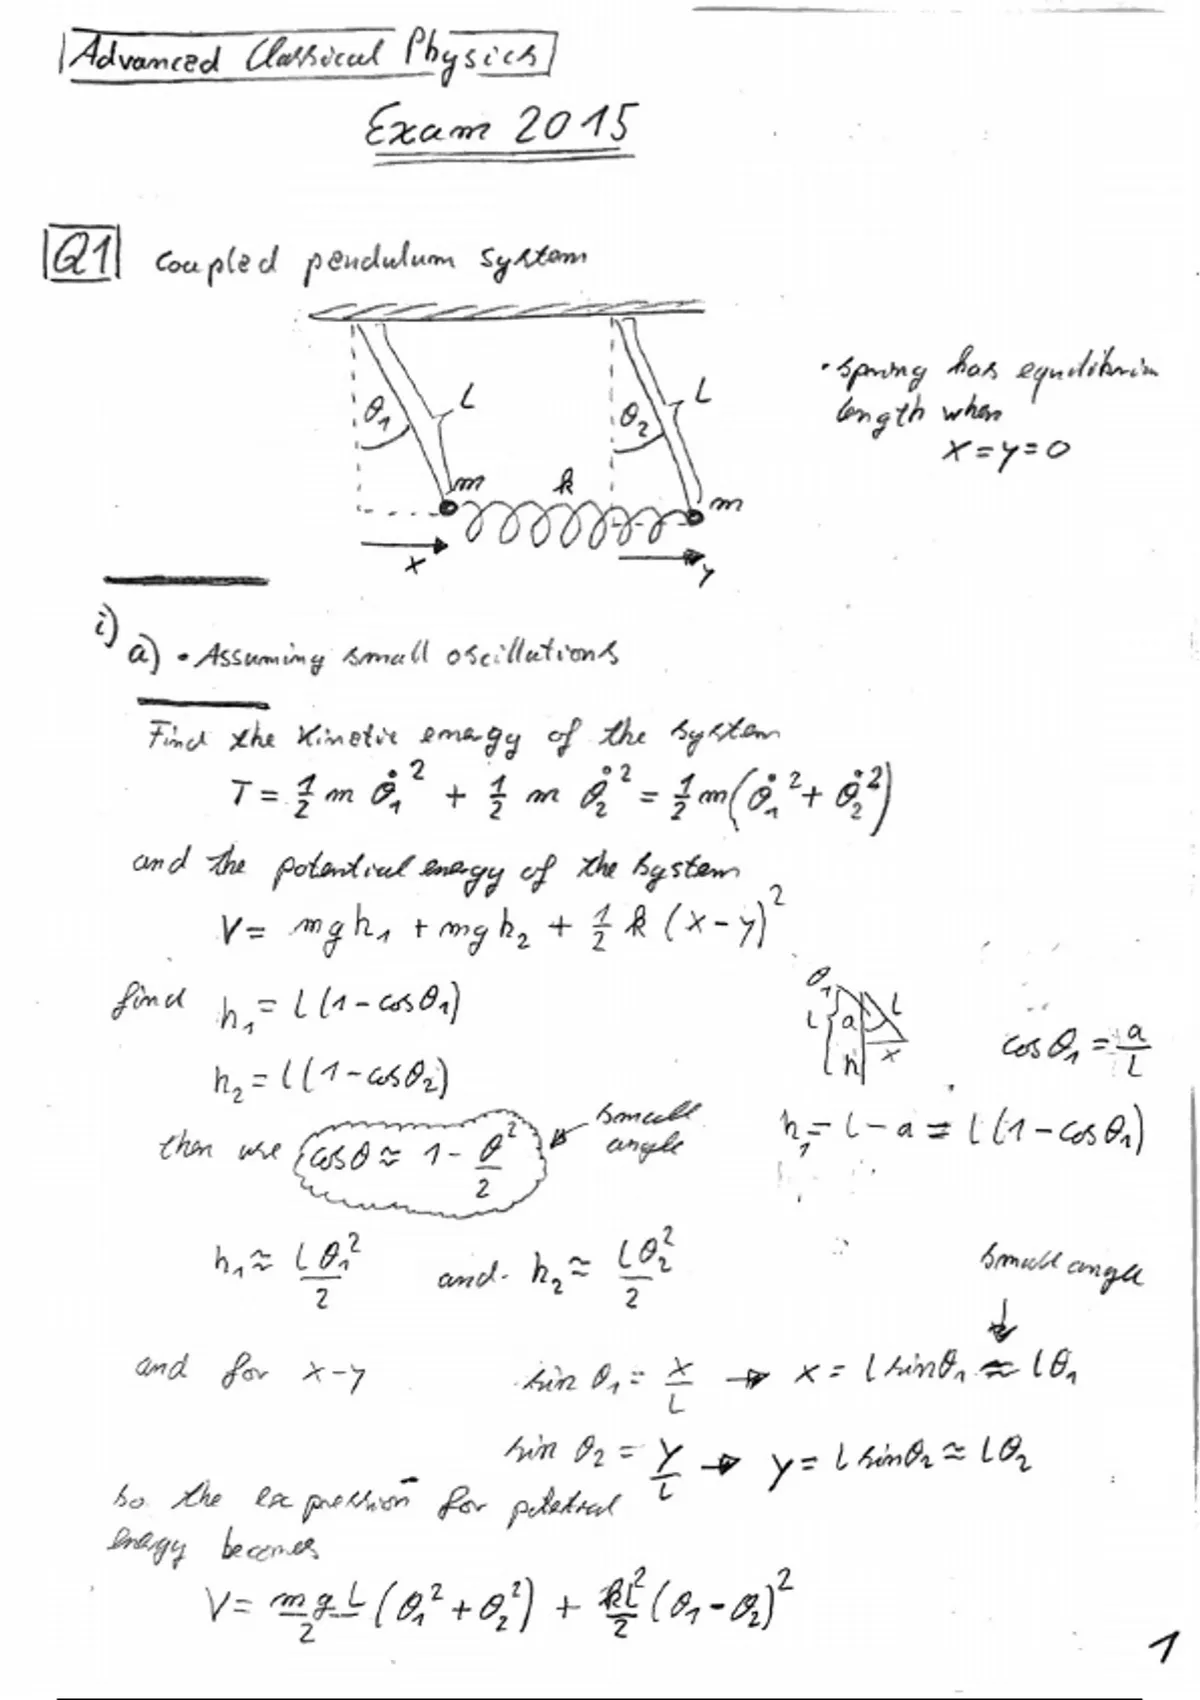 Advanced Classical Physics
Exam 2015
Q1 Coupled pendulum system
θ₁ L θ₂ L
m k m
x y
• spring has equilibrium
length when
x = y = 0
i)
a) • Assuming small oscillations
Find the kinetic energy of the system
T = 1/2 m θ̇₁² + 1/2 m θ̇₂² = 1/2 m (θ̇₁² + θ̇₂²)
and the potential energy of the system
V = mgh₁ + mgh₂ + 1/2 k (x - y)²
find h₁ = L(1 - cosθ₁)
h₂ = L(1 - cosθ₂)
θ₁ L a L h x
cosθ₁ = a/L
h₁ = L - a = L(1 - cosθ₁)
then use cosθ ≈ 1 - θ²/2
small
angle
h₁ ≈ Lθ₁²/2 and h₂ ≈ Lθ₂²/2
small angle
and for x-y sin θ₁ = x/L → x = L sinθ₁ ≈ Lθ₁
sin θ₂ = y/L → y = L sinθ₂ ≈ Lθ₂
so the expression for potential
energy becomes
V = mgL/2 (θ₁² + θ₂²) + kL²/2 (θ₁ - θ₂)²
1